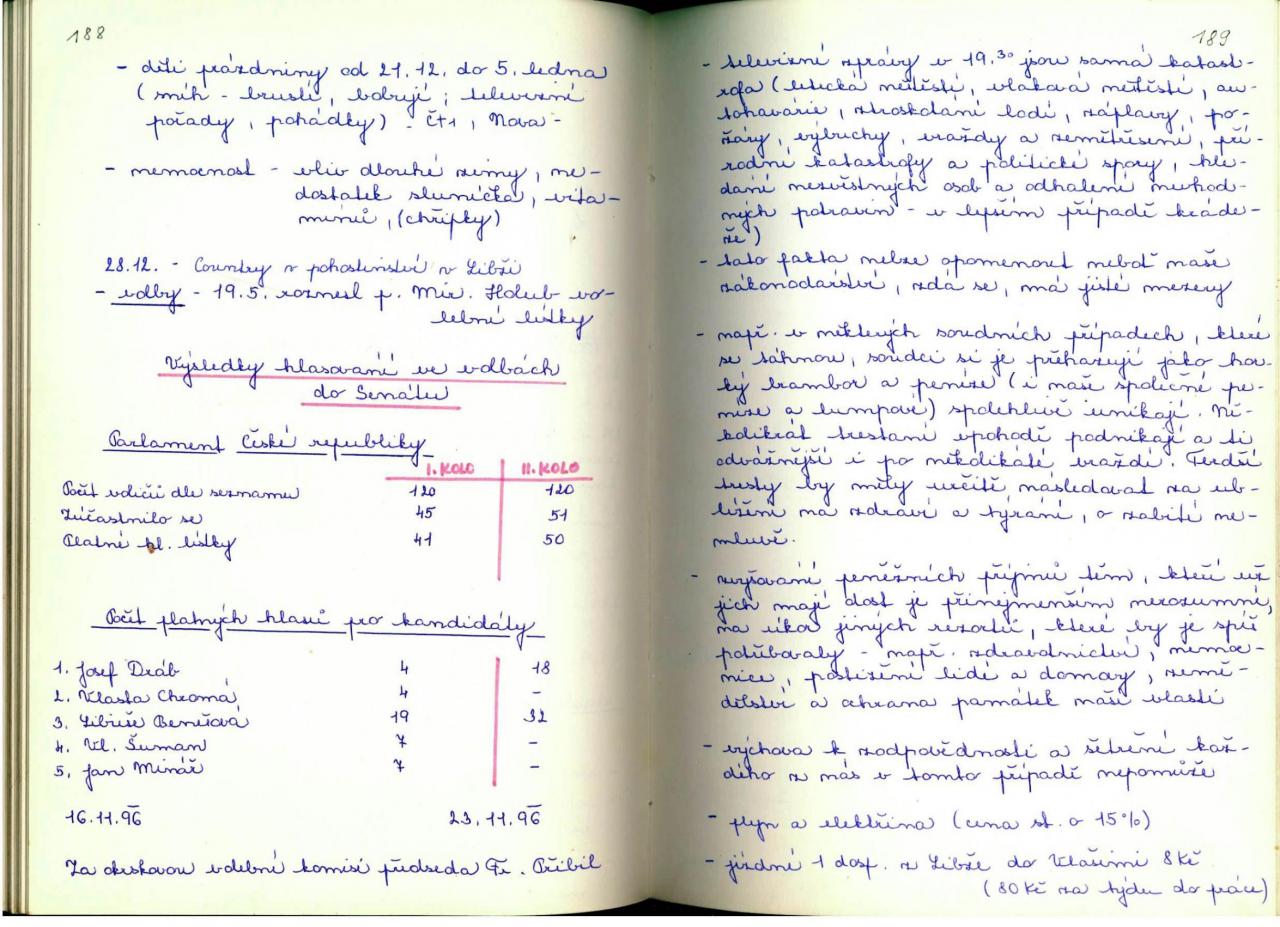 188
- děti prázdniny od 21.12. do 5. ledna
(sníh - bruslí, bobují; televizní
pořady, pohádky) - ČT1, Nova -
- nemocnost - vliv dlouhé zimy, ne-
dostatek sluníčka, vita-
mínů, (chřipky)
28.12. - Country v pohostinství v Libži
- volby - 19.5. roznesl p. Mir. Holub vo-
lební lístky
Výsledky hlasování ve volbách
do Senátu
Parlament České republiky
I. KOLO II. KOLO
Počet voličů dle seznamu 120 120
Zúčastnilo se 45 51
Platné hl. lístky 41 50
Počet platných hlasů pro kandidáty
1. Josef Dráb 4 18
2. Vlasta Chromá 4 -
3. Libuše Benešová 19 32
4. Vl. Šuman 7 -
5. Jan Minář 7 -
16.11.96 23.11.96
Za okrskovou volební komisi předseda Fr. Přibil
189
- televizní zprávy v 19.30 jsou samá katast-
rofa (letecká neštěstí, vlaková neštěstí, au-
tohavárie, ztroskotání lodí, záplavy, po-
žáry, výbuchy, vraždy a zemětřesení, pří-
rodní katastrofy a politické spory, hle-
dání nezvěstných osob a odhalení nevhod-
ných potravin - v lepším případě kráde-
že)
- tato fakta nelze opomenout neboť naše
zákonodárství, zdá se, má jisté mezery
- např. v některých soudních případech, které
se táhnou, soudci si je přehazují jako hor-
ký brambor a peníze (i naše společné pe-
níze a lumpové) spolehlivě unikají. Ně-
kolikrát trestaní v pohodě podnikají a ti
odvážnější i po několikáté vraždí. Tvrdší
tresty by měly určitě následovat za ub-
lížení na zdraví a týrání, o zabití ne-
mluvě.
- zvyšování peněžních příjmů těm, kteří už
jich mají dost je přinejmenším nerozumné,
na úkor jiných rezortů, které by je spíš
potřebovaly - např. zdravotnictví, nemoc-
nice, postižení lidé a domovy, země-
dělství a ochrana památek naší vlasti
- výchova k zodpovědnosti a šetření kaž-
dého z nás v tomto případě nepomůže
- plyn a elektřina (cena st. o 15%)
- jízdné 1 dosp. z Libže do Vlašimi 8 Kč
(80 Kč za týden do práce)